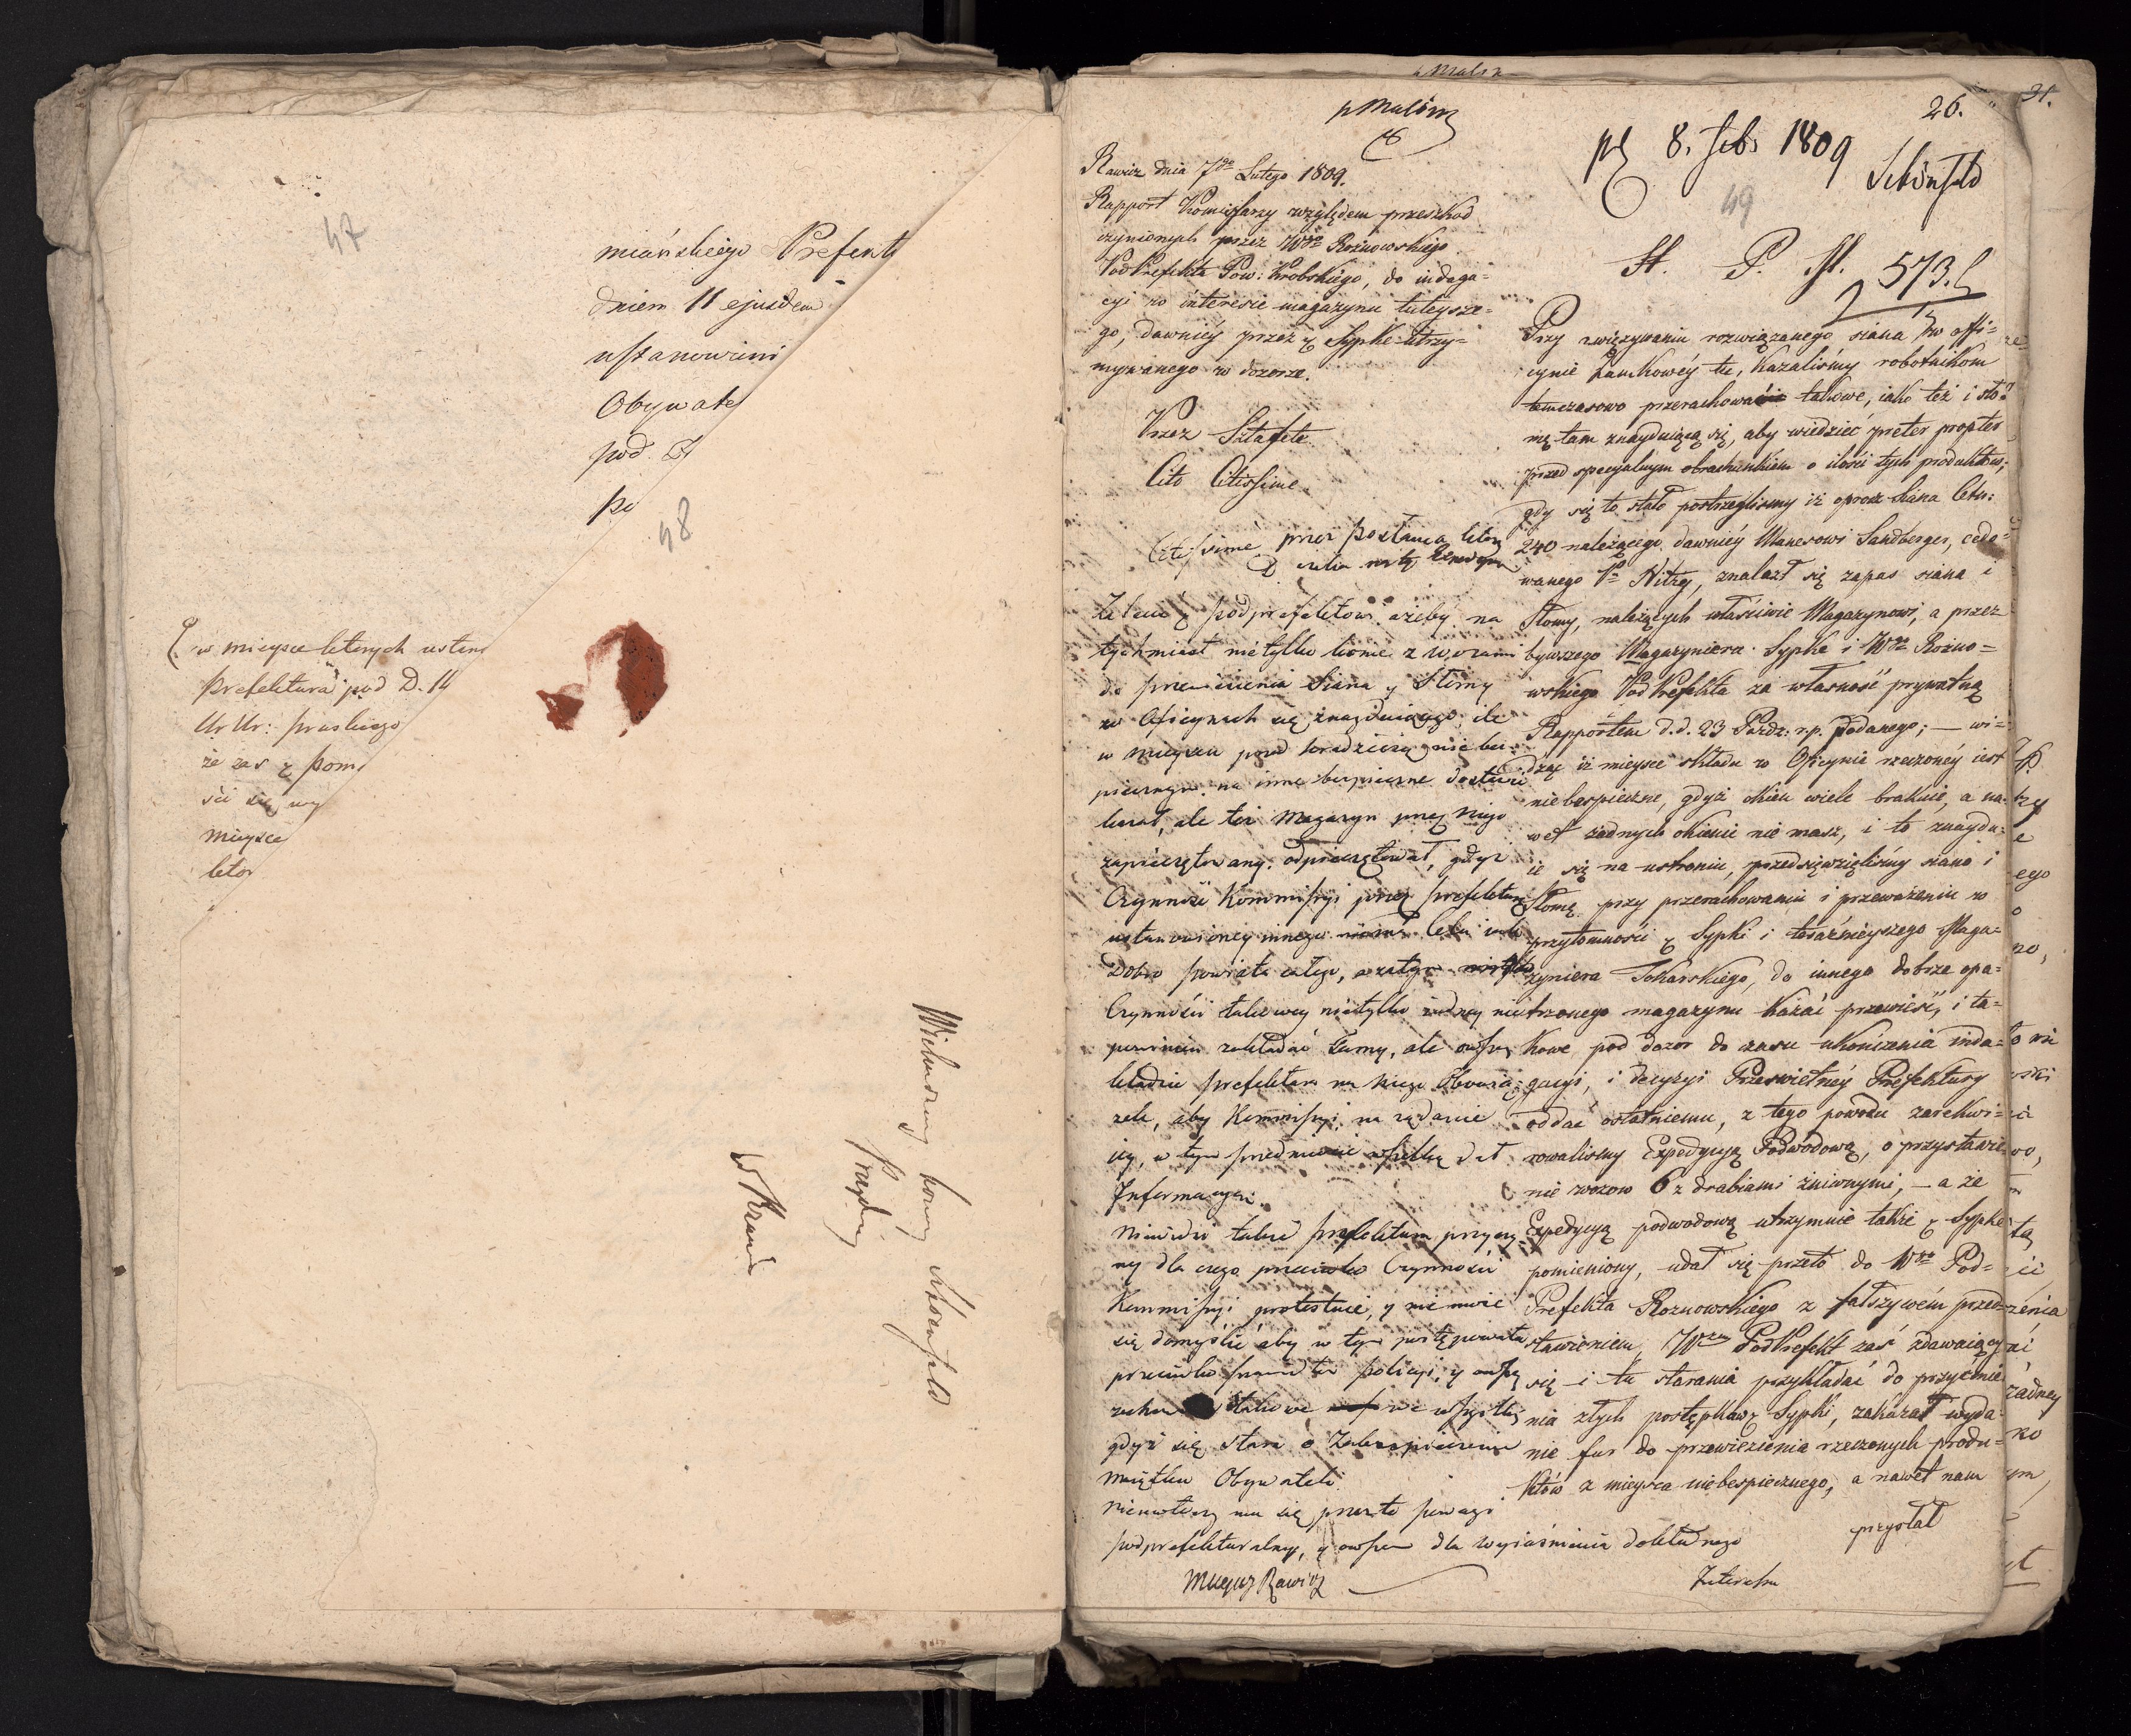 47
miańskiego Prefekt
dniem 11 ejusdem
ustanowieni
Obywatel
pod
po
48
w mieysce letorych ustan
Prefektura pod D. 14
Ur Ur: Pruskiego
że zas z pom
ści się wy
mieysce
letor
Wielmożny
Schoenfeld
p Malin
26.
31.
49
pz 8. Febr 1809
Schönfeld
St. P. St.
573.
Rawicz dnia 7go Lutego 1809.
Rapport Komissarzy względem przeszkod
czynionych przez Wgo Rożnowskiego
PodPrefekta Pow: Krobskiego, do indaga=
cyi w interesie magazynu tuteysze=
go, dawniéy przez P. Sypke utrzy=
mywanego w dozorze.
Przez Sztafete
Cito Citissime.
Citissime przez posłańca
Zaleca podprefektowi ażeby na
tychmiast nietylko konie z wozami
do przewiezienia Siana y Słomy
w Oficynach się znayduiącego, ile
w mieyscu przed kradzieżą niebez-
piecznym na inne bezpieczne dostawić
kazał, ale też Magazyn przez niego
zapieczętowany, odpieczętował, gdyż
Czynność Kommissyi przez Prefekturę
ustanowioney innego celu iak
dobro powiatu całego, a zatym
Czynności takowey nietylko żadney nie
powinien zakładać tamy, ale owszem
kładzie prefektura na niego Obowią-
zek, aby Kommissyi na żądanie
iey, w tym przedmiocie wszelką dał
Informacyą.
Niewidzi także prefektura przyczy
ny dla czego przeciwko Czynności
Kommissyi protestuie, y nie może
się domyślić aby w tym postępowała
przeciwko prawidłu policyi, y owszem
zachowuie takowe we wszystkim
gdyż się stara o Zabezpieczenie
Maiątku Obywateli.
podprefekturalney, y owszem dla wyiaśnienia dokładnego
Przy zwięzywaniu rozwiązanego siana w offi=
cynie zamkowéy tu, Kazaliśmy robotnikom
tymczasowo przerachować takowe, iako też i sło=
mę tam znayduiącą się, aby wiedzieć preter propter
przed specyalnym obrachunkiem o ilości tych produktów;
gdy się to stało postrzegliśmy iż oprocz siana Cetn:
240 należącego dawniéy Manesowi Sandberger, cedo=
wanego Pu Nitzy, znalazł się zapas siana i
Słomy, należących właściwie Magazynowi, a przez
bywszego Magazyniera Sypke i Wgo Rożno=
wskiego PodPrefekta za własność prywatną
Rapportem d.d. 23 Paźdz: r.p. podanego; — wi=
dząc iż mieysce składu w Oficynie rzeczonéy iest
niebespieczne, gdyż okien wiele brakuie, a na-
wet żadnych okienic nie masz, i to znaydu=
ie się na ustroniu, przedsięwzięliśmy siano i
Słomę przy przerachowaniu i przeważeniu w
przytomności P. Sypki i teraźnieyszego Maga=
zyniera Tokarskiego, do innego dobrze opa=
trzonego magazynu kazać przewieść, i ta=
kowe pod dozor do czasu ukończenia inda=
gacyi, i decyzyi Prześwietnéy Prefektury
oddać ostatniemu, z tego powodu zarekwi=
rowaliśmy Expedycyą Podwodową, o przystawie-
nie wozow 6 z drabiami żniwnymi, — a że
Expedycyą podwodową utrzymuie także P. Sypke
pomieniony, udał się przeto do Wgo Pod=
Prefekta Rożnowskiego z fałszywém przed=
stawieniem, Wny PodPrefekt zaś zdawaiący
się i tu starania przykładać do przyćmie
nia złych postępków P. Sypki, zakazał wyda
nie fur do przewiezienia rzeczonych produ=
któw z mieysca niebespiecznego, a nawet nam
przysłał